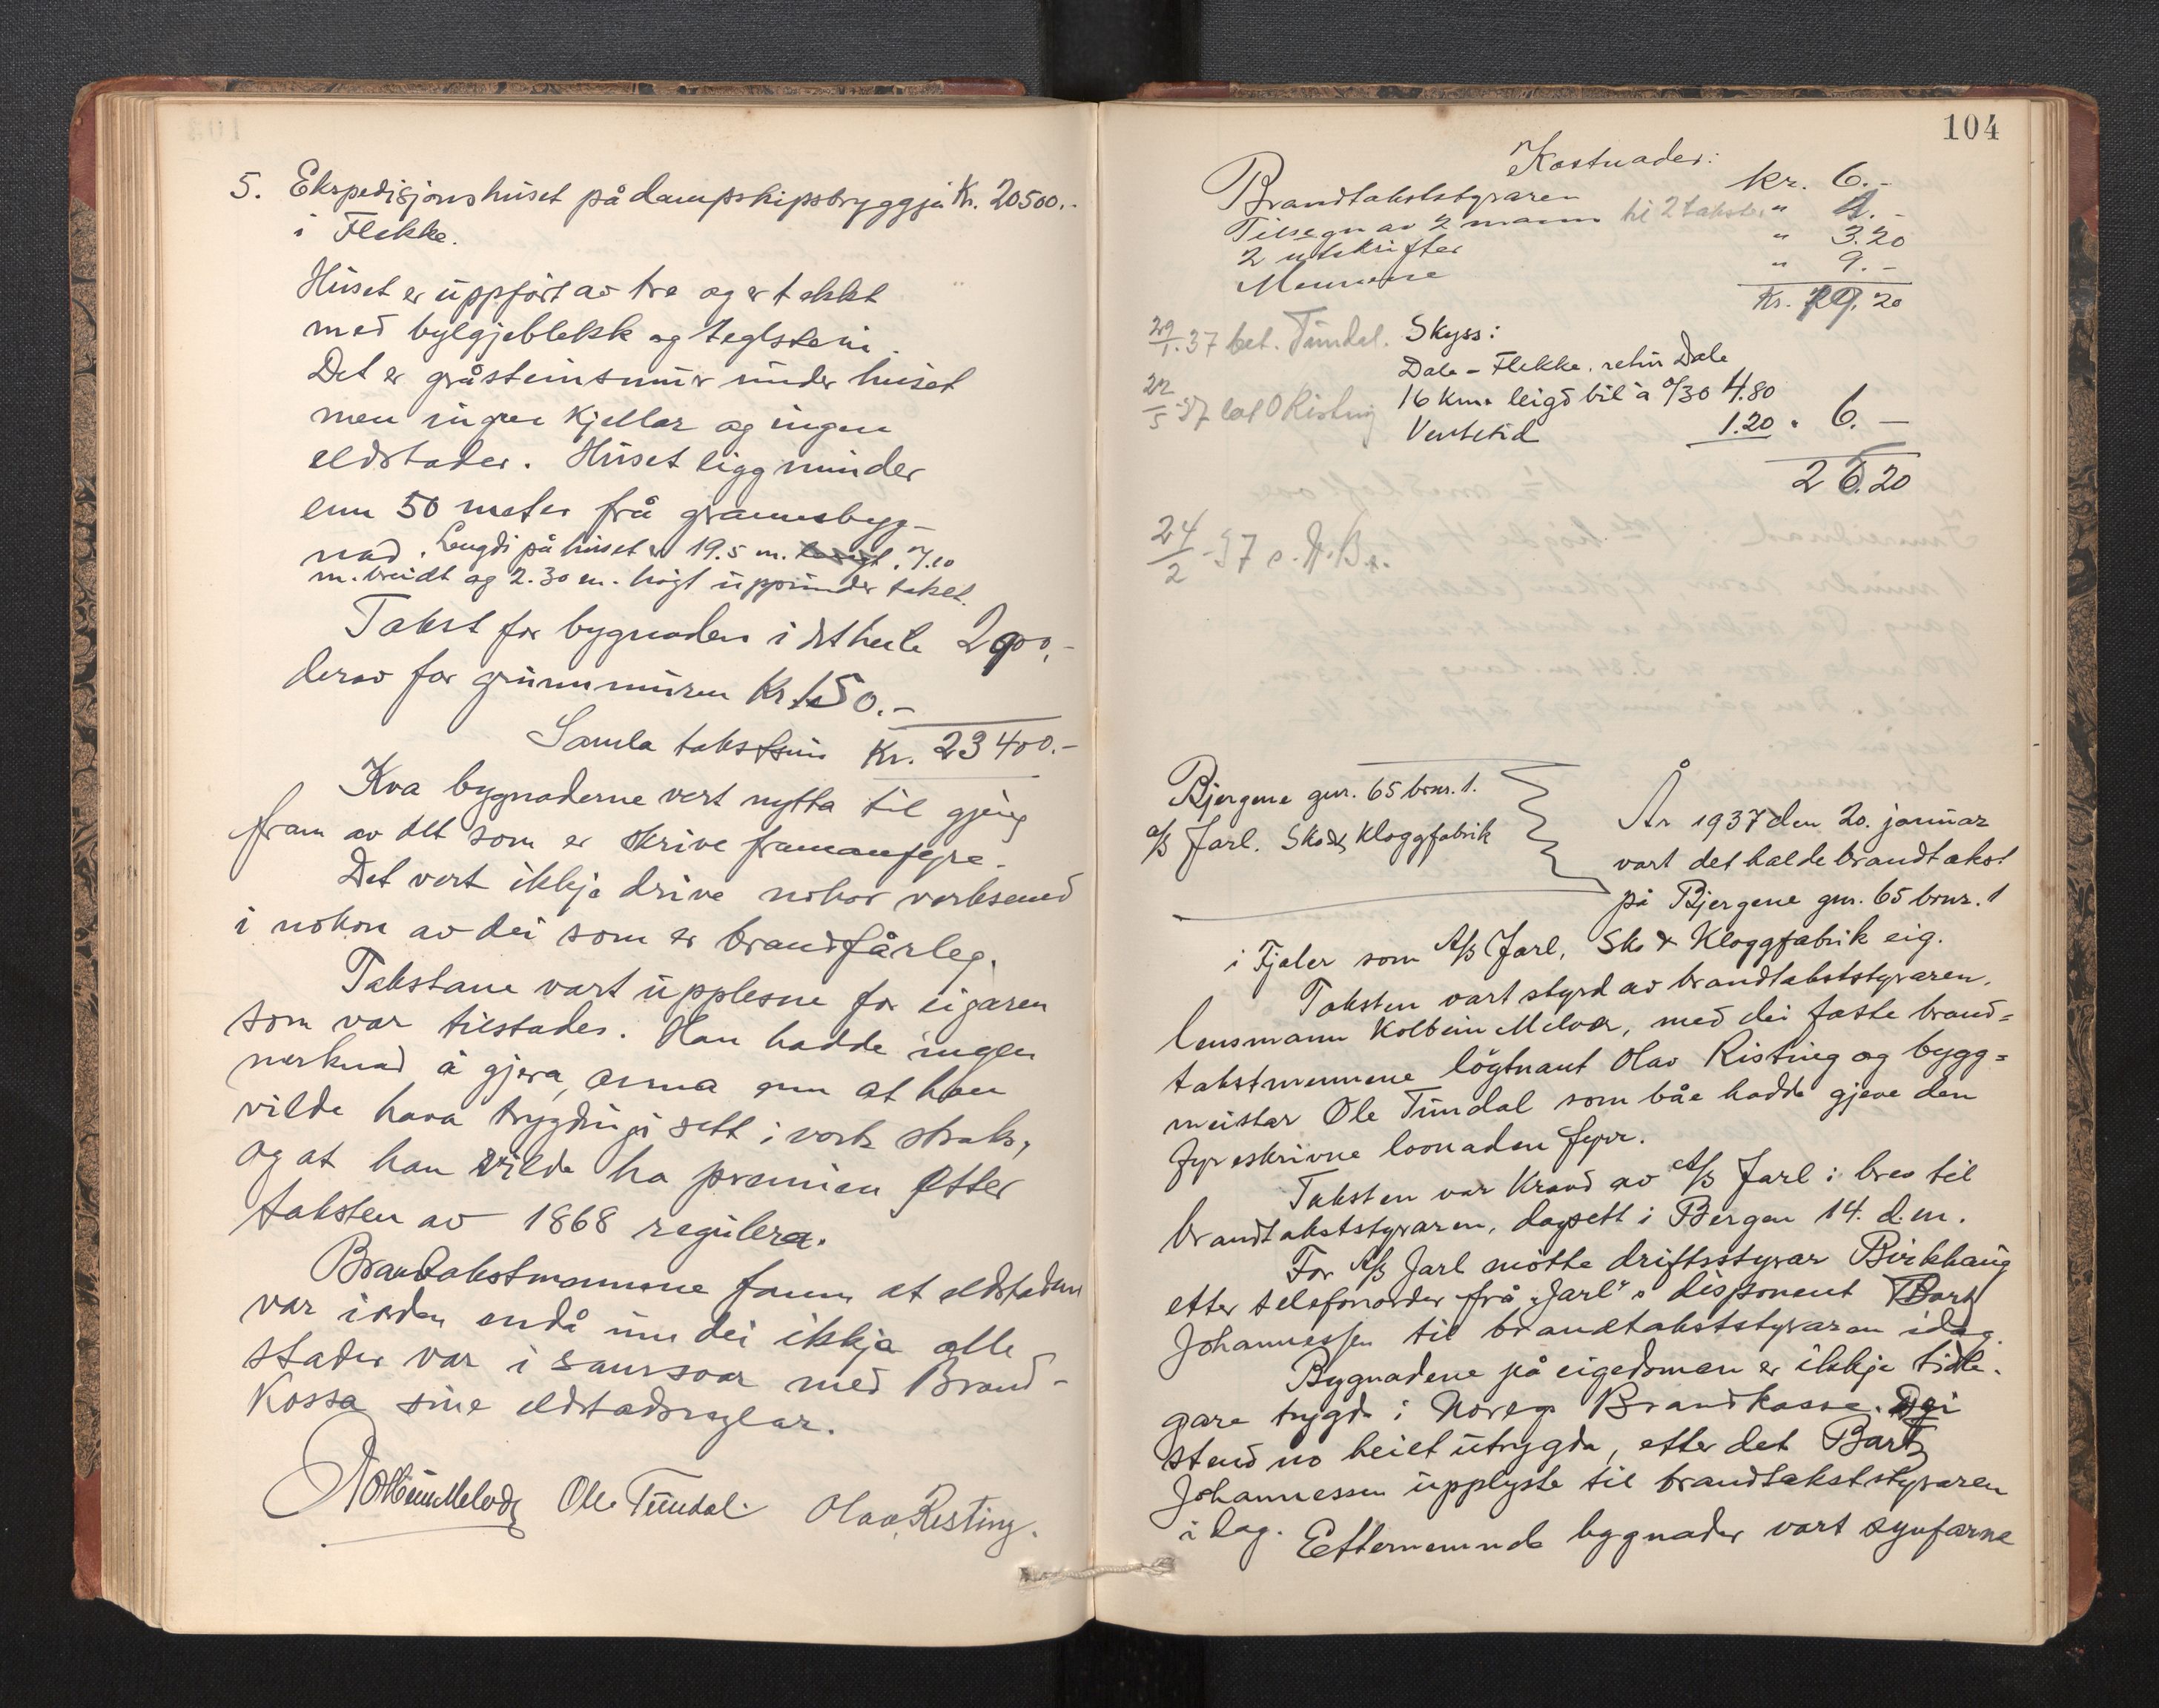 5. Ekspedisjonshuset på dampskipsbryggja Kr. 20500.-
i Flekke.
Huset er uppført av tre og er tekkt
med bylgjeblekk og teglstein.
Det er gråsteinsmur under huset
men ingen kjellar og ingen
eldstader. Huset ligg minder
enn 50 meter frå grannebygg-
nad. Lengdi på huset er 19.5 m. 7.10
m. breidt og 2.30 m. högt uppunder taket.
Takst for bygnaden i det heile 2900.-
derav for grunnmuren Kr. 150.-
Samla takstsum Kr. 23400.-
Kva bygnaderne vert nytta til gjeng
fram av det som er skrive framanfyre.
Det vert ikkje drive nokor verksemd
i nokon av dei som er brandfårleg.
Takstane vart upplesne for eigaren
som var tilstades. Han hadde ingen
merknad å gjera, anna enn at han
vilde hava trygdingi sett i verk straks,
og at han vilde ha premien etter
taksten av 1868 regulera.
Brandtakstmennene fann at eldstadene
var iorden endå um dei ikkje alle
stader var i samsvar med Brand-
kassa sine eldstadsreglar.
Kolbein Melvær Ole Tundal. Olav Risting.
104
Kostnader:
Brandtakststyraren kr. 6.-
Tilsegn av 2 mann til 2 takster " .-
2 utskrifter " 3.20
Mennene " 9.-
Kr. 20
29/1.37 bet. Tundal. Skyss:
Dale - Flekke, retur Dale
22/5-37 bet O Risting 16 km. leigd bil à 0/30 4.80
Ventetid 1.20 " 6.-
26.20
24/2-37 s. N. Br.
Bjergene gnr. 65 bnr. 1.
A/S Jarl. Sko & Kloggfabrik
År 1937 den 20. januar
vart det halde brandtakst
på Bjergene gnr. 65 bnr. 1
i Fjaler som A/S Jarl, Sko & Kloggfabrik eig.
Taksten vart styrd av brandtakststyraren,
lensmann Kolbein Melvær, med dei faste brand=
takstmennene löytnant Olav Risting og bygg=
meistar Ole Tundal som båe hadde gjeve den
fyreskrivne lovnaden fyrr.
Taksten var kravd av A/S Jarl i brev til
brandtakststyraren, dagsett i Bergen 14. d.m.
For A/S Jarl mötte driftsstyrar Birkhaug
etter telefonorder frå "Jarl"s disponent Bart
Johannessen til brandtakststyraren idag.
Bygnadene på eigedomen er ikkje tidle-
gare trygda i Noregs Brandkasse. Dei
stend no heilt utrygda, etter det Bart
Johannessen upplyste til brandtakststyraren
i dag. Etternemnde bygnader vart synfarne